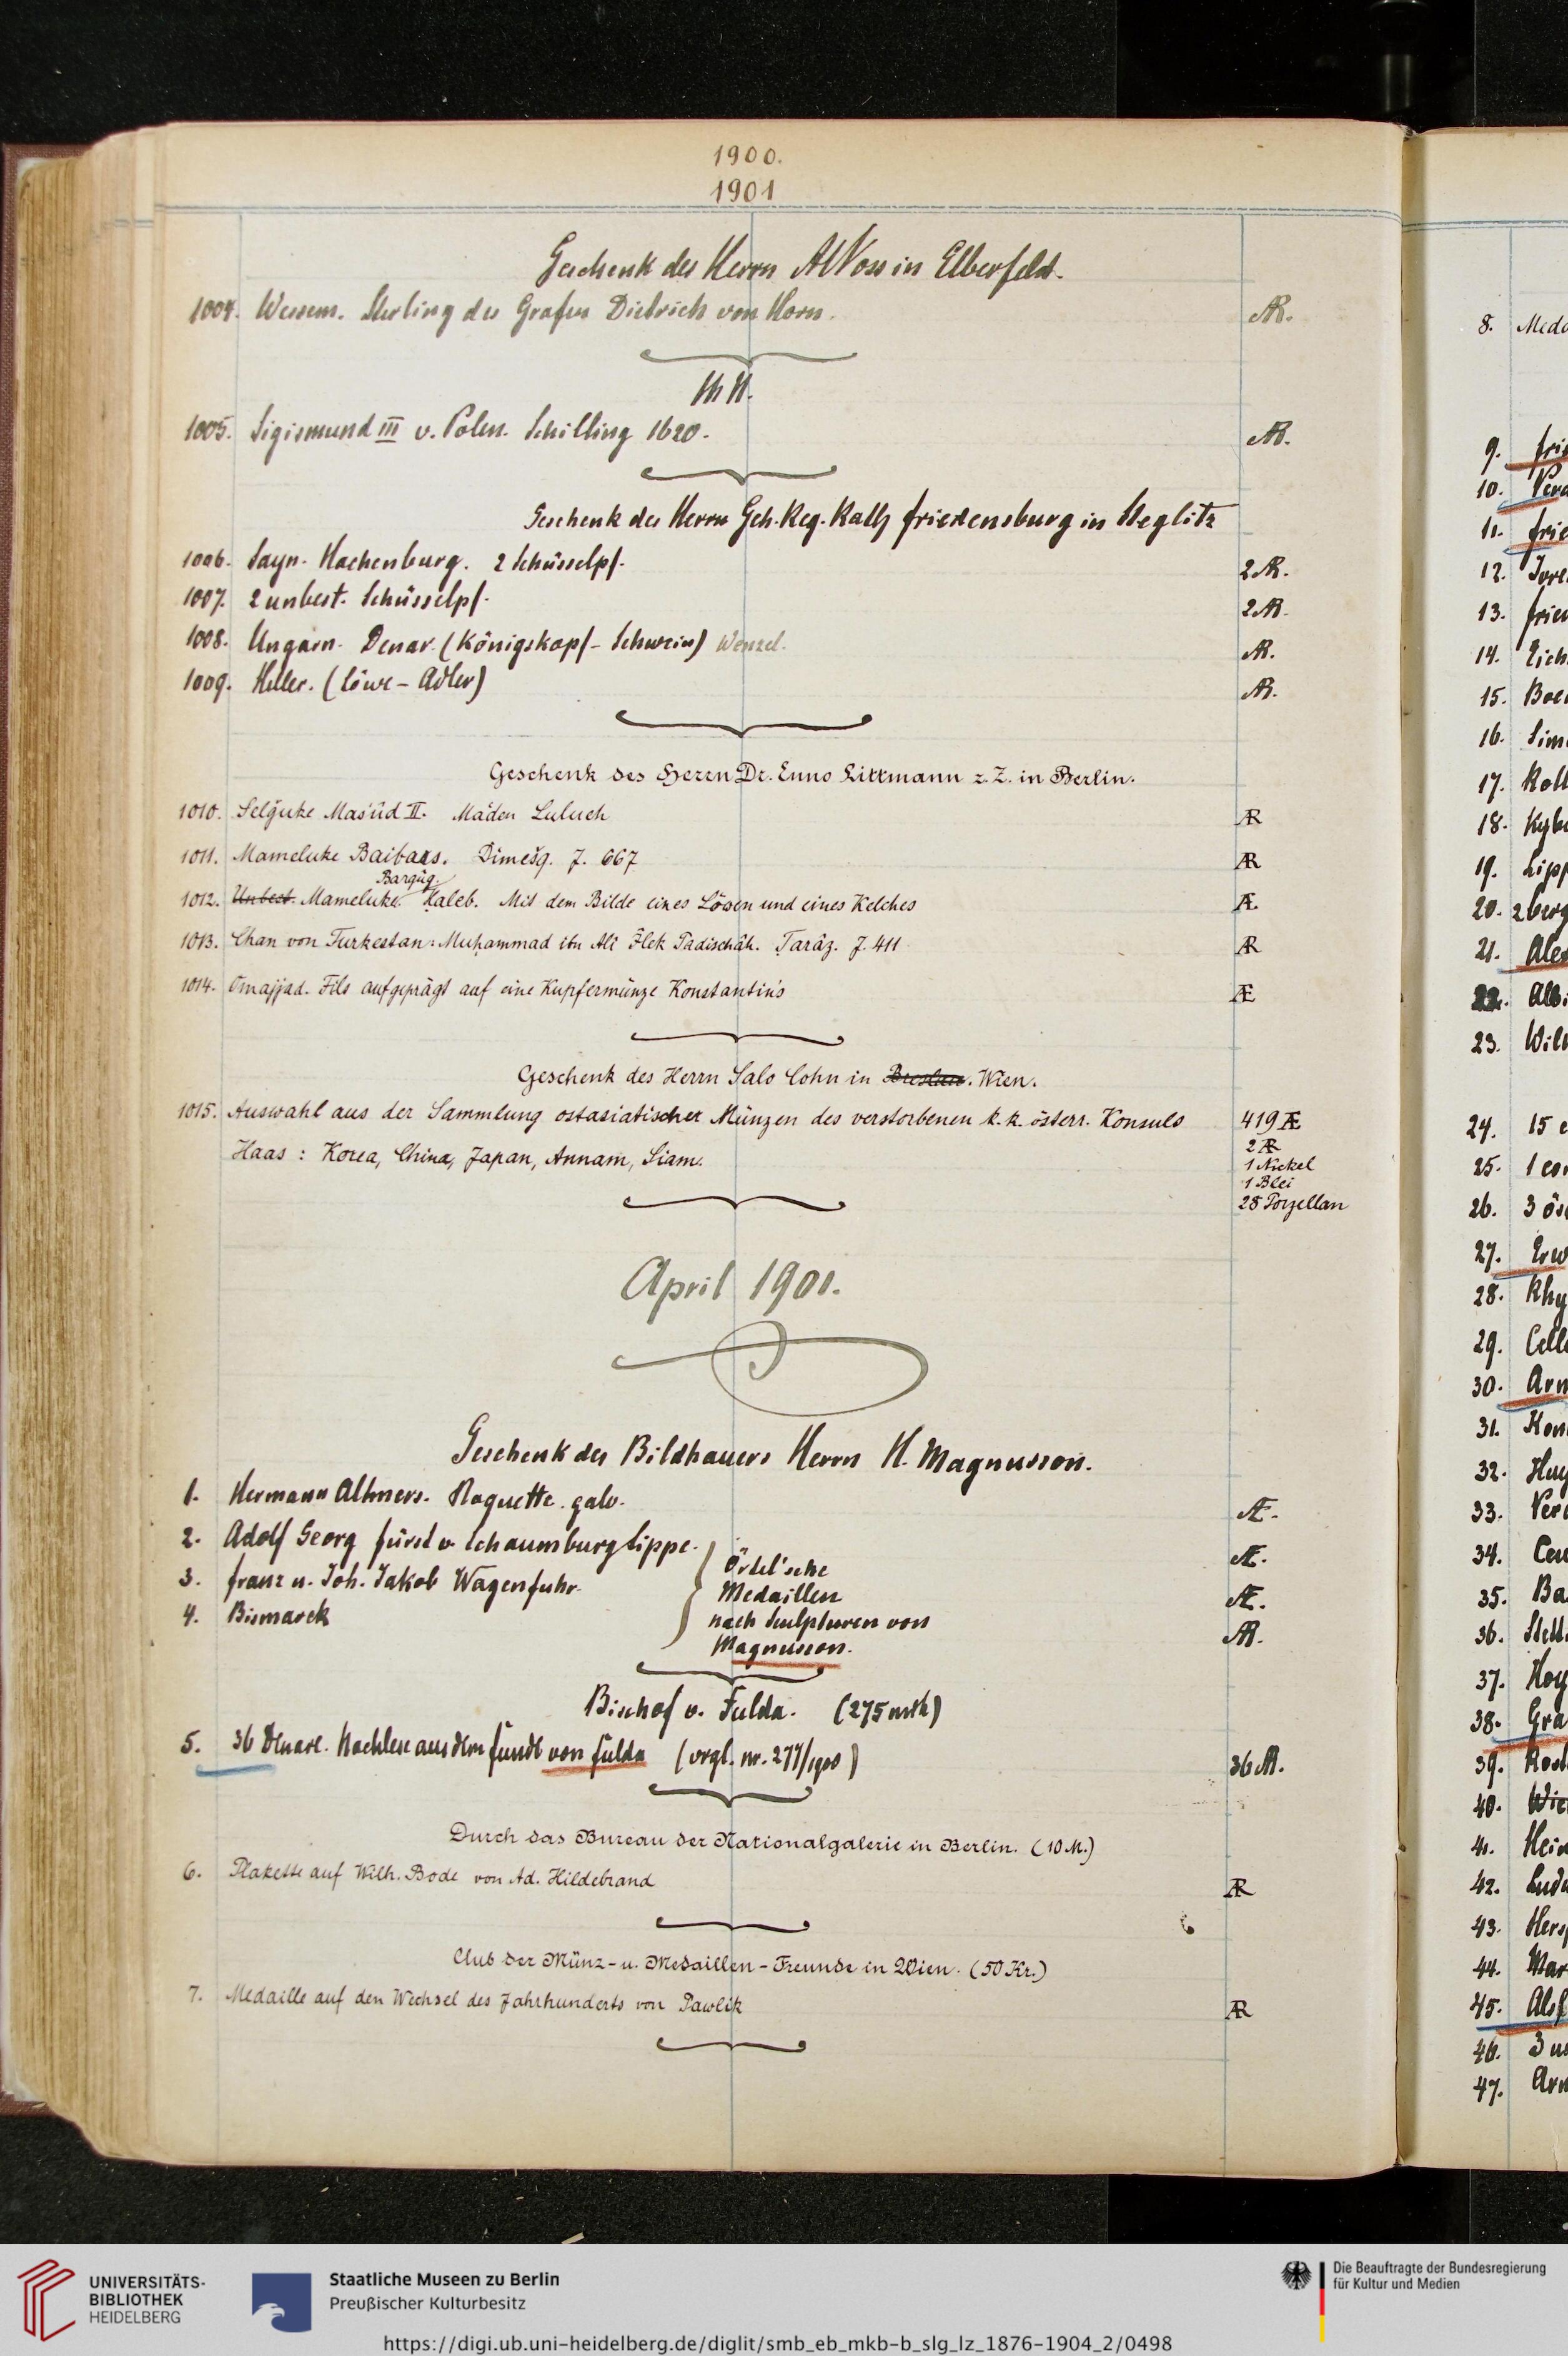 1900.
1901
Geschenk des Herrn A Voss in Elberfeld.
1004. Wessem. Sterling des Grafen Dietrich von Horn. AR.
1005. Sigismund III v. Polen. Schilling 1620. AR.
Geschenk des Herrn Geh. Reg. Rath Friedensburg in Steglitz
1006. Sayn-Hachenburg. 2 Schüsselpf. 2 AR.
1007. 2 unbest. Schüsselpf. 2 AR.
1008. Ungarn. Denar. (Königskopf - Schwein) Wenzel. AR.
1009. Heller. (Löwe - Adler) AR.
Geschenk des Herrn Dr. Enno Littmann z. Z. in Berlin.
1010. Selǧuke Mas'ûd II. Ma'den Lulueh AR
1011. Mameluke Baibars. Dimešq. J. 667 AR
Barqûq.
1012. Unbest. Mameluke. Ḥaleb. Mit dem Bilde eines Löwen und eines Kelches Æ
1013. Chan von Turkestan: Muḥammad ibn Alî Îlek Padischâh. Ṭarâz. J. 411 AR
1014. Omajjad. Fils aufgeprägt auf eine Kupfermünze Konstantin's Æ
Geschenk des Herrn Salo Cohn in Breslau. Wien.
1015. Auswahl aus der Sammlung ostasiatischer Münzen des verstorbenen k. k. österr. Konsuls 419 Æ
Haas : Korea, China, Japan, Annam, Siam. 2 AR
1 Nickel
1 Blei
28 Porzellan
April 1901.
Geschenk des Bildhauers Herrn H. Magnusson.
1. Hermann Allmers. Plaquette. galv. Æ.
2. Adolf Georg Fürst v. Schaumburg Lippe. Æ.
3. Franz u. Joh. Jakob Wagenfuhr. Æ.
4. Bismarck AR.
Örtel'sche
Medaillen
nach Sculpturen von
Magnusson.
Bischof v. Fulda. (275 mrk)
5. 36 Denare. Nachlese aus dem Funde von Fulda (vrgl. nr. 277/1900) 36 AR.
Durch das Bureau der Nationalgalerie in Berlin. (10 M.)
6. Plakette auf Wilh. Bode von Ad. Hildebrand AR
Club der Münz- u. Medaillen-Freunde in Wien. (50 Kr.)
7. Medaille auf den Wechsel des Jahrhunderts von Pawlik AR
8.
9.
10.
11.
12.
13.
14.
15.
16.
17.
18.
19.
20.
21.
22.
23.
24. 15
25. 1
26. 3
27.
28.
29.
30.
31.
32.
33.
34.
35.
36.
37.
38.
39.
40.
41.
42.
43.
44.
45.
46.
47.
UNIVERSITÄTS-
BIBLIOTHEK
HEIDELBERG
Staatliche Museen zu Berlin
Preußischer Kulturbesitz
Die Beauftragte der Bundesregierung
für Kultur und Medien
https://digi.ub.uni-heidelberg.de/diglit/smb_eb_mkb-b_slg_lz_1876-1904_2/0498